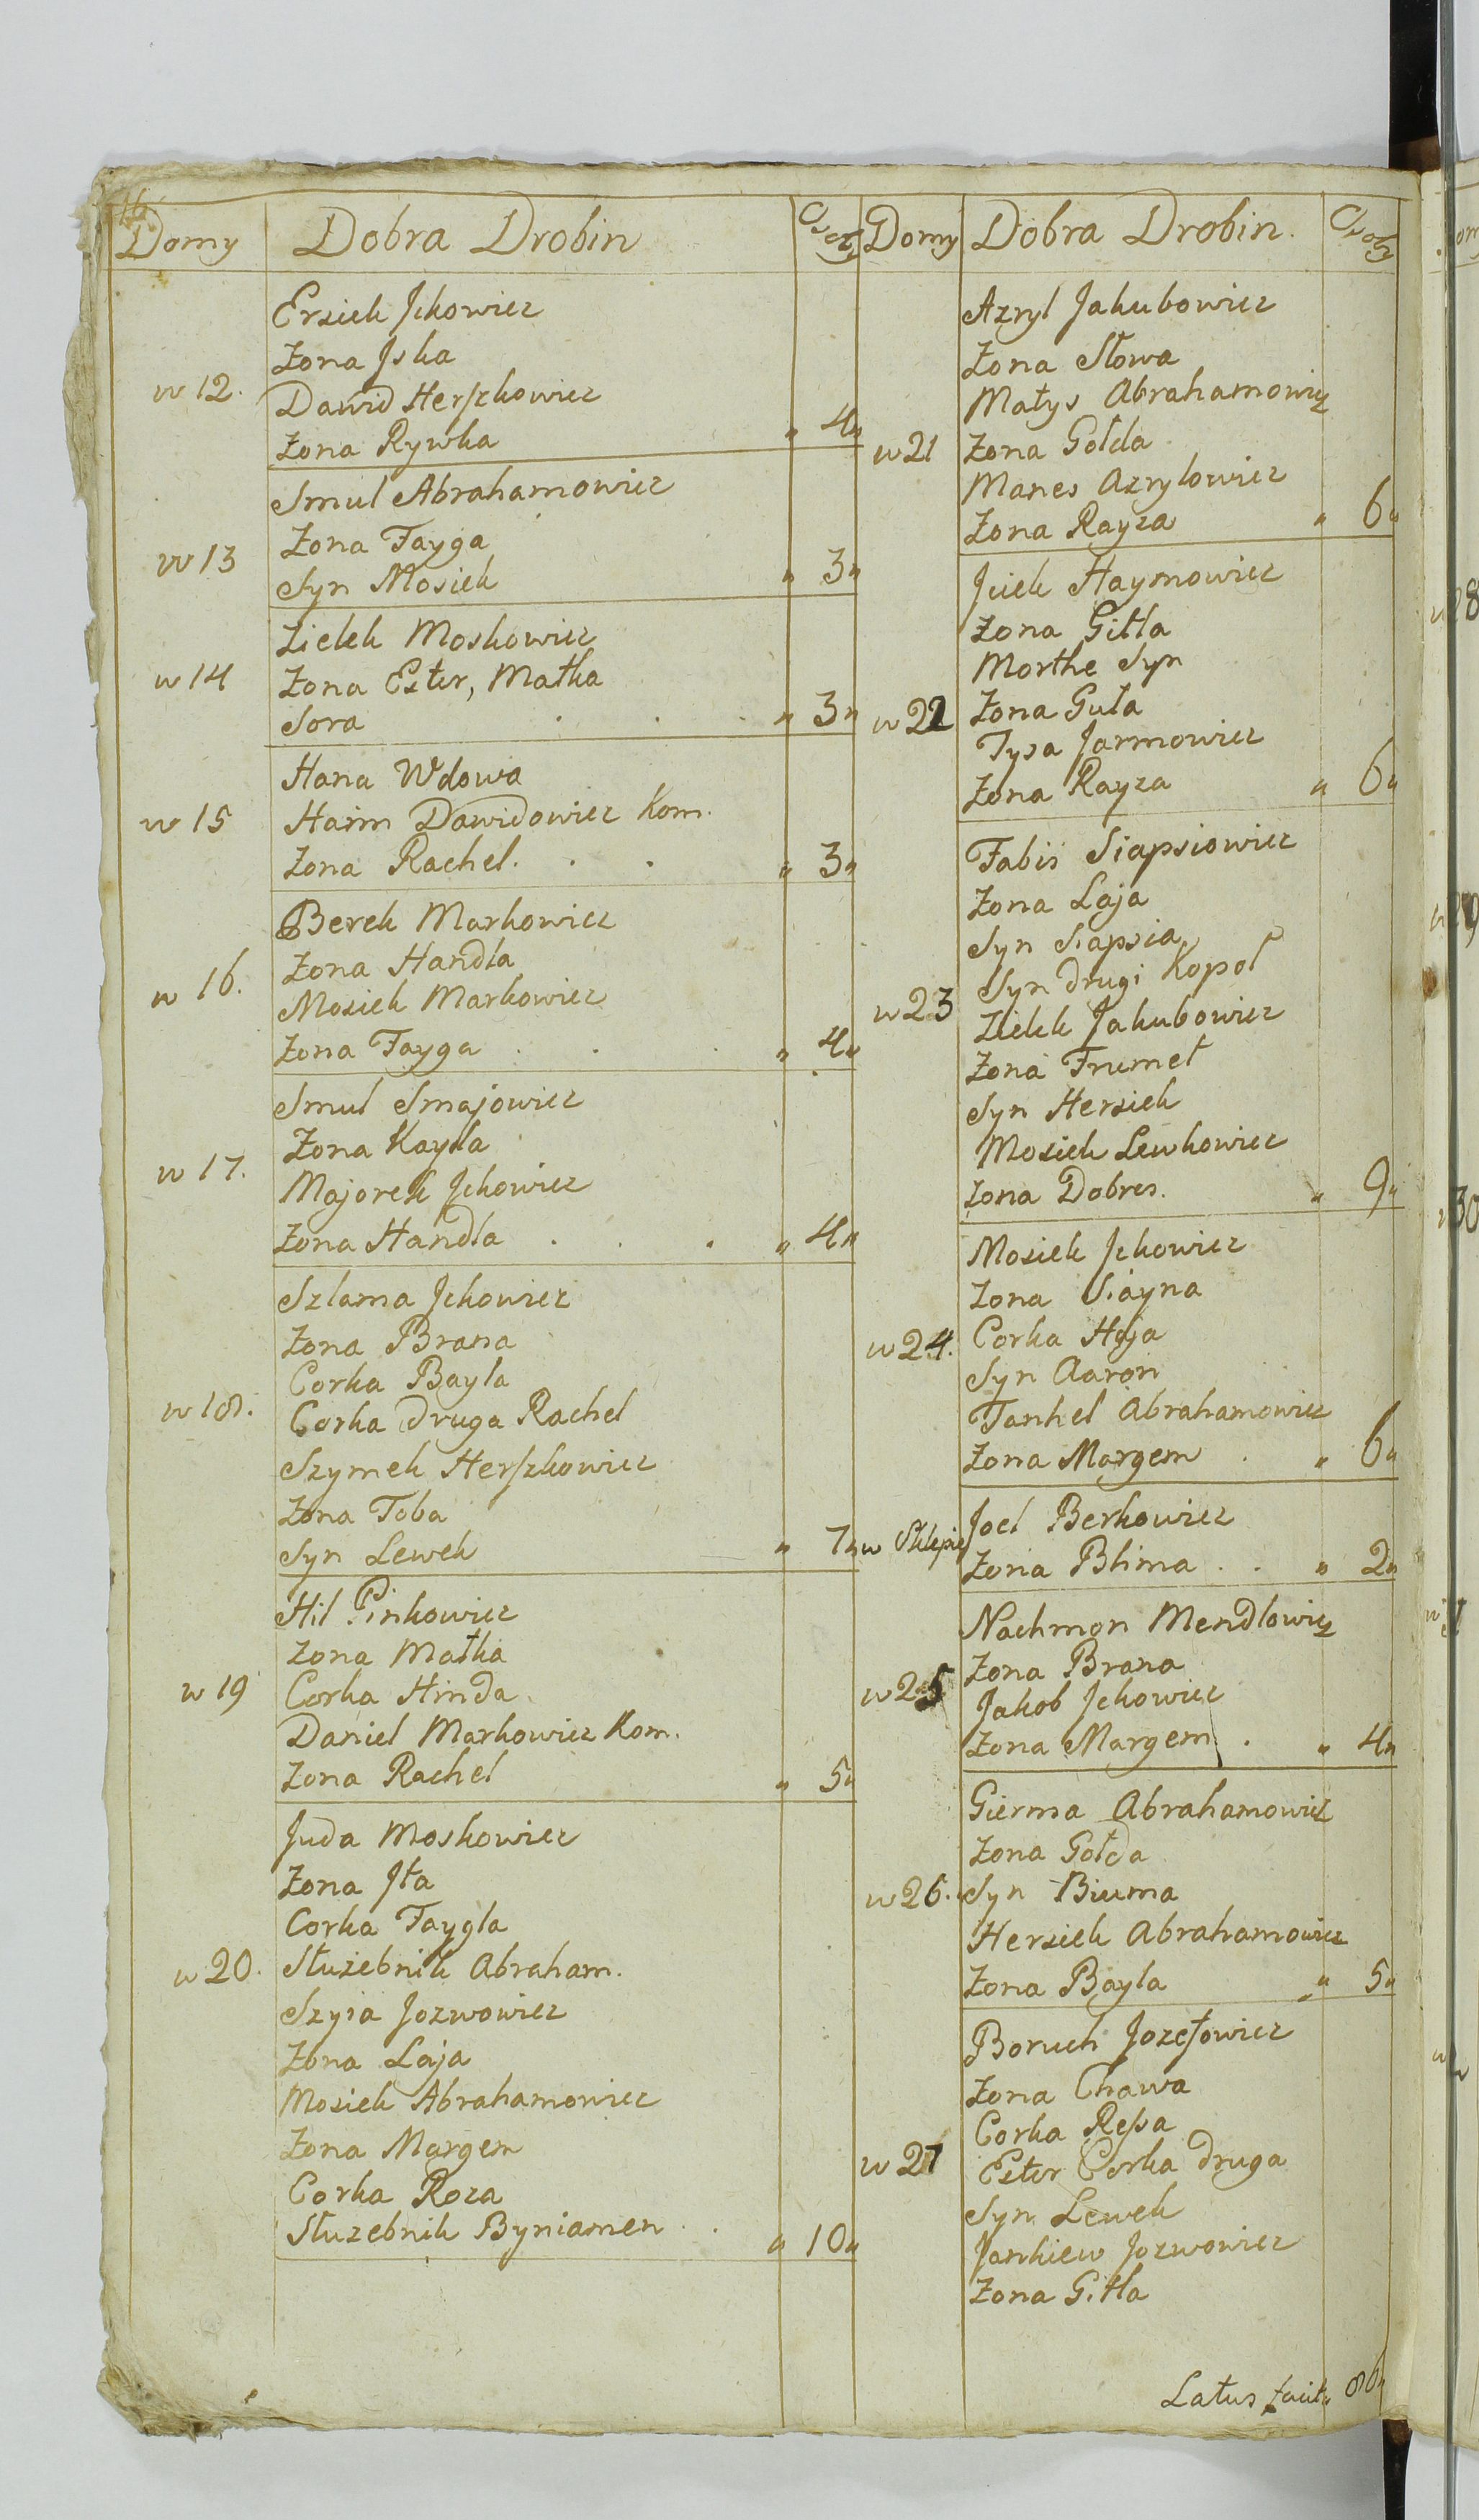 16
Domy Dobra Drobin Osoby
Ersiek Jckowicz
Zona Jska
w 12. Dawid Herszkowicz
Zona Rywka " 4"
Smul Abrahamowicz
w 13 Zona Fayga
Syn Mosiek " 3"
Zielek Moskowicz
w 14 Zona Ester, Matka
Sora . . . " 3"
Hana Wdowa
w 15 Haim Dawidowicz Kom.
Zona Rachel. . . " 3"
Berek Markowicz
Zona Handla
w 16. Mosiek Markowicz
Zona Fayga . . . " 4"
Smul Smajowicz
Zona Kayla
w 17. Majorek Jckowicz
Zona Handla . . . " 4"
Szlama Jckowicz
Zona Brana
Corka Bayla
w 18. Corka druga Rachel
Szymek Herszkowicz
Zona Toba
Syn Lewek " 7"
Hil Pinkowicz
Zona Matka
w 19 Corka Hinda
Daniel Markowicz Kom.
Zona Rachel " 5"
Juda Moskowicz
Zona Jta
Corka Faygla
w 20. Służebnik Abraham.
Szyia Jozwowicz
Zona Laja
Mosiek Abrahamowicz
Zona Margem
Corka Roza
Służebnik Byniamen . . " 10"
Domy Dobra Drobin. Osoby
Azryl Jakubowicz
Zona Słowa
Matys Abrahamowicz
w 21 Zona Gołda
Manes Azrylowicz
Zona Rayza " 6"
Jciek Haymowicz
Zona Gitla
Morthe Syn
w 22 Zona Guta
Tysa Jarmowicz
Zona Rayza " 6"
Fabis Siapsiowicz
Zona Laja
Syn Siapsia
Syn drugi Kopol
w 23 Zielek Jakubowicz
Zona Frumet
Syn Hersiek
Mosiek Lewkowicz
Zona Dobres. " 9"
Mosiek Jckowicz
Zona Siayna
w 24. Corka Haja
Syn Aaron
Tankel Abrahamowicz
Zona Margem . " 6"
w Sklepie Joel Berkowicz
Zona Blima . . " 2"
Nachmon Mendlowicz
w 25 Zona Brana
Jakob Jckowicz
Zona Margem . " 4"
Gierma Abrahamowicz
Zona Gołda
w 26. Syn Biuma
Hersiek Abrahamowicz
Zona Bayla " 5"
Boruch Jozefowicz
Zona Chawa
Corka Ressa
w 27 Ester Corka druga
Syn Lewek
Jankiew Jozwowicz
Zona Gitla
Latus facit " 86"